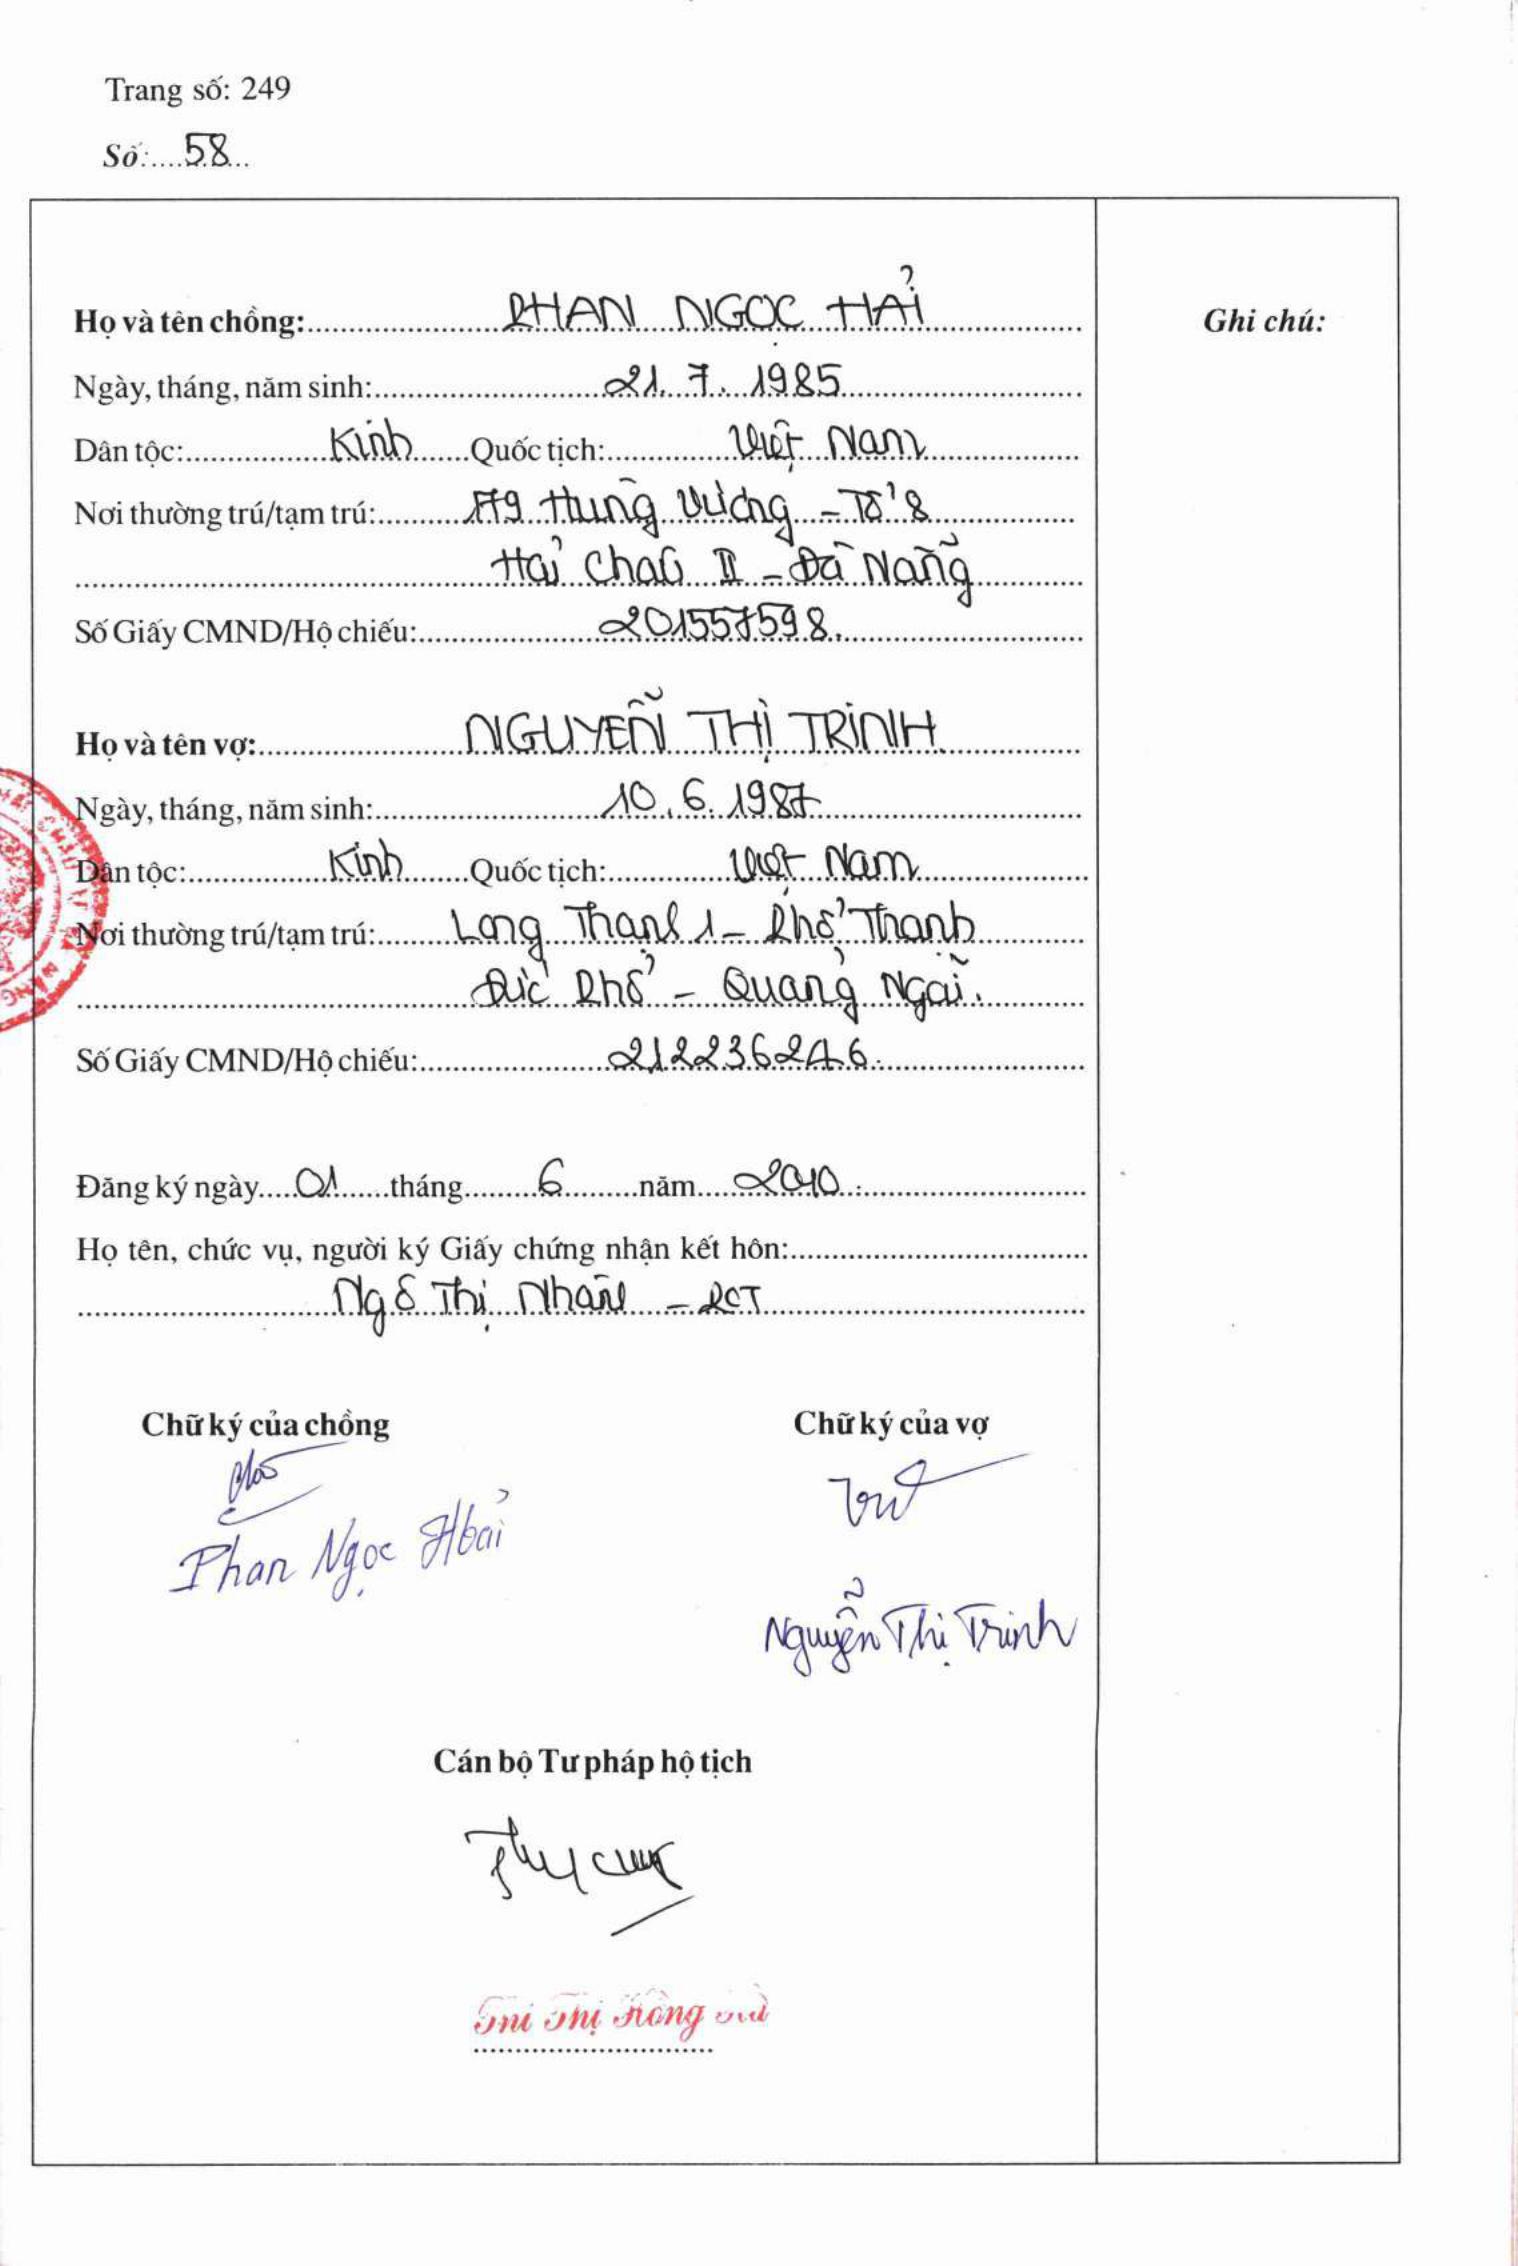 Trang số: 249
Số: 58
Họ và tên chồng: PHAN NGỌC HẢI
Ghi chú:
Ngày, tháng, năm sinh: 21.7.1985
Dân tộc: Kinh Quốc tịch: Việt Nam
Nơi thường trú/tạm trú: 179 Hùng Vương - Tổ 8
Hải Châu II - Đà Nẵng
Số Giấy CMND/Hộ chiếu: 201557598.
Họ và tên vợ: NGUYỄN THỊ TRINH
Ngày, tháng, năm sinh: 10.6.1987
Dân tộc: Kinh Quốc tịch: Việt Nam
Nơi thường trú/tạm trú: Long Thạnh 1 - Phổ Thạnh
Đức Phổ - Quảng Ngãi.
Số Giấy CMND/Hộ chiếu: 212236246.
Đăng ký ngày 01 tháng 6 năm 2010
Họ tên, chức vụ, người ký Giấy chứng nhận kết hôn:
Ngô Thị Nhân - PCT
Chữ ký của chồng Chữ ký của vợ
Phan Ngọc Hải
Nguyễn Thị Trinh
Cán bộ Tư pháp hộ tịch
Thị Hồng